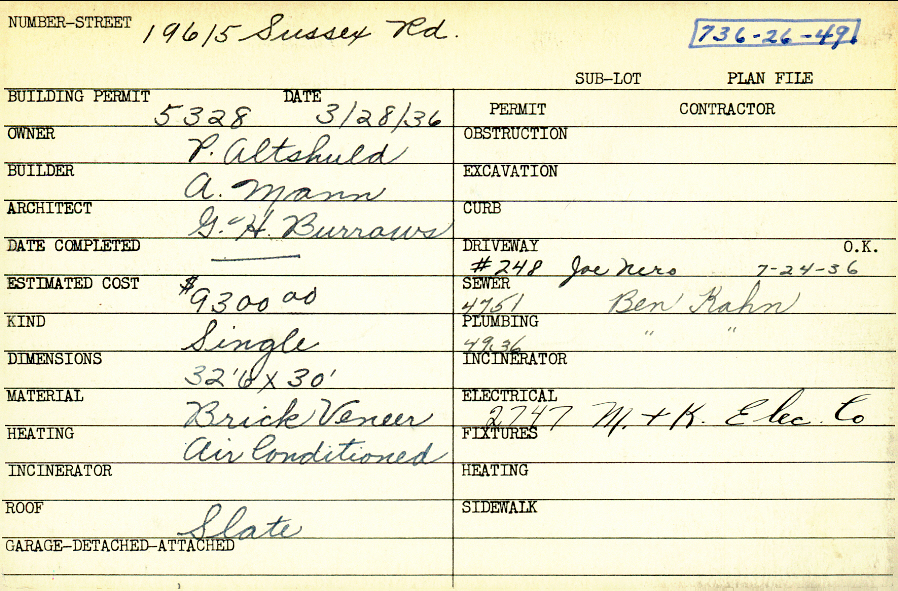 NUMBER-STREET 19615 Sussex Rd. 736-26-49
SUB-LOT PLAN FILE
BUILDING PERMIT 5328 DATE 3/28/36
PERMIT CONTRACTOR
OWNER P. Altshuld
OBSTRUCTION
BUILDER A. Mann
EXCAVATION
ARCHITECT G. H. Burrows
CURB
DATE COMPLETED —
DRIVEWAY #248 Joe Nero 7-24-36 O.K.
ESTIMATED COST $9300 00
SEWER 4751 Ben Kahn
KIND Single
PLUMBING 4936 " "
DIMENSIONS 32'6 x 30'
INCINERATOR
MATERIAL Brick Veneer
ELECTRICAL 2747 M. + K. Elec. Co
HEATING Air Conditioned
FIXTURES
INCINERATOR
HEATING
ROOF Slate
SIDEWALK
GARAGE-DETACHED-ATTACHED